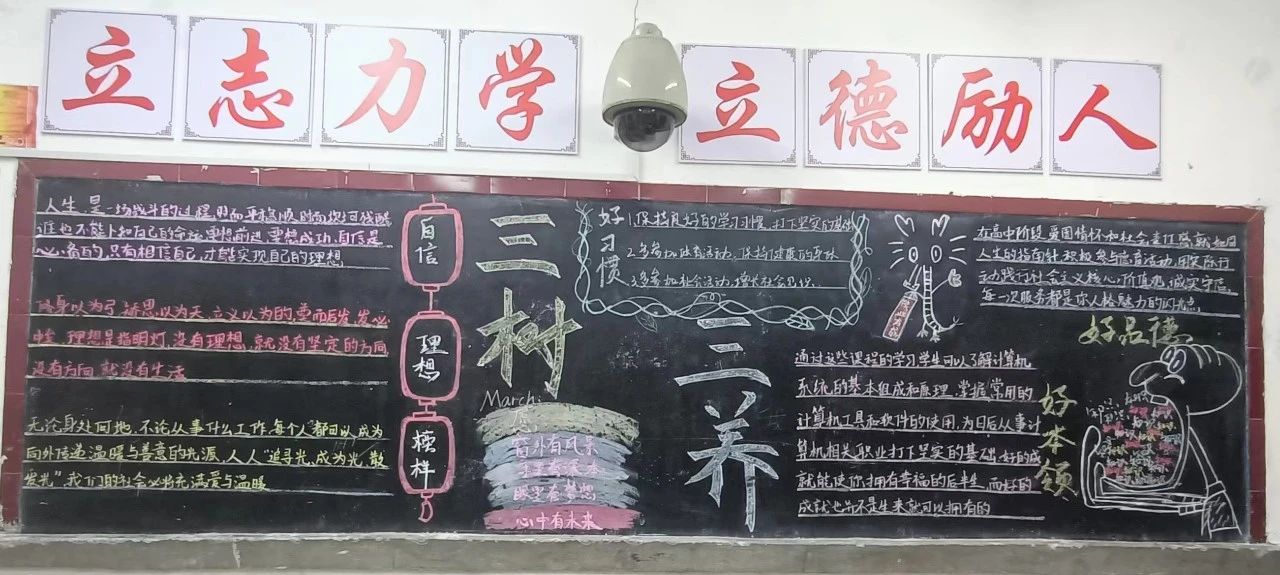 立志力学
立德励人
人生是一场战斗的过程,时而平稳顺,时而坎坷残酷
谁也不能卜知自己的命运,要想前进,要想成功,自信是
必备的,只有相信自己,才能实现自己的理想
自信
修身以为弓,矫思以为矢,立义以为的,奠而后发,发必
中矣,理想是指明灯,没有理想,就没有坚定的方向
没有方向就没有生活
理想
无论身处何地,不论从事什么工作,每个人都可以成为
向外传递温暖与善意的光源,人人“追寻光,成为光,散
发光”我们的社会必将充满爱与温暖
榜样
三树
March:
窗外有风景
手里有
眼里有梦想
心中有未来
好习惯
1.保持良好的学习习惯,打下坚实的基础
2.多参加体育活动,保持健康的身体
3.多参加社会活动,增长社会见识.
二养
在高中阶段,爱国情怀和社会责任感就如同
人生的指南针,积极参与德育活动,用实际行
动践行社会主义核心价值观,诚实守信
每一次服务都是你人格魅力的闪光点
好品德
通过这些课程的学习学生可以了解计算机
系统的基本组成和原理,掌握常用的
计算机工具和软件的使用,为日后从事计
算机相关职业打下坚实的基础,好的成
就能使你拥有幸福的后半生,而好的
成就也并不是生来就可以拥有的
好本领